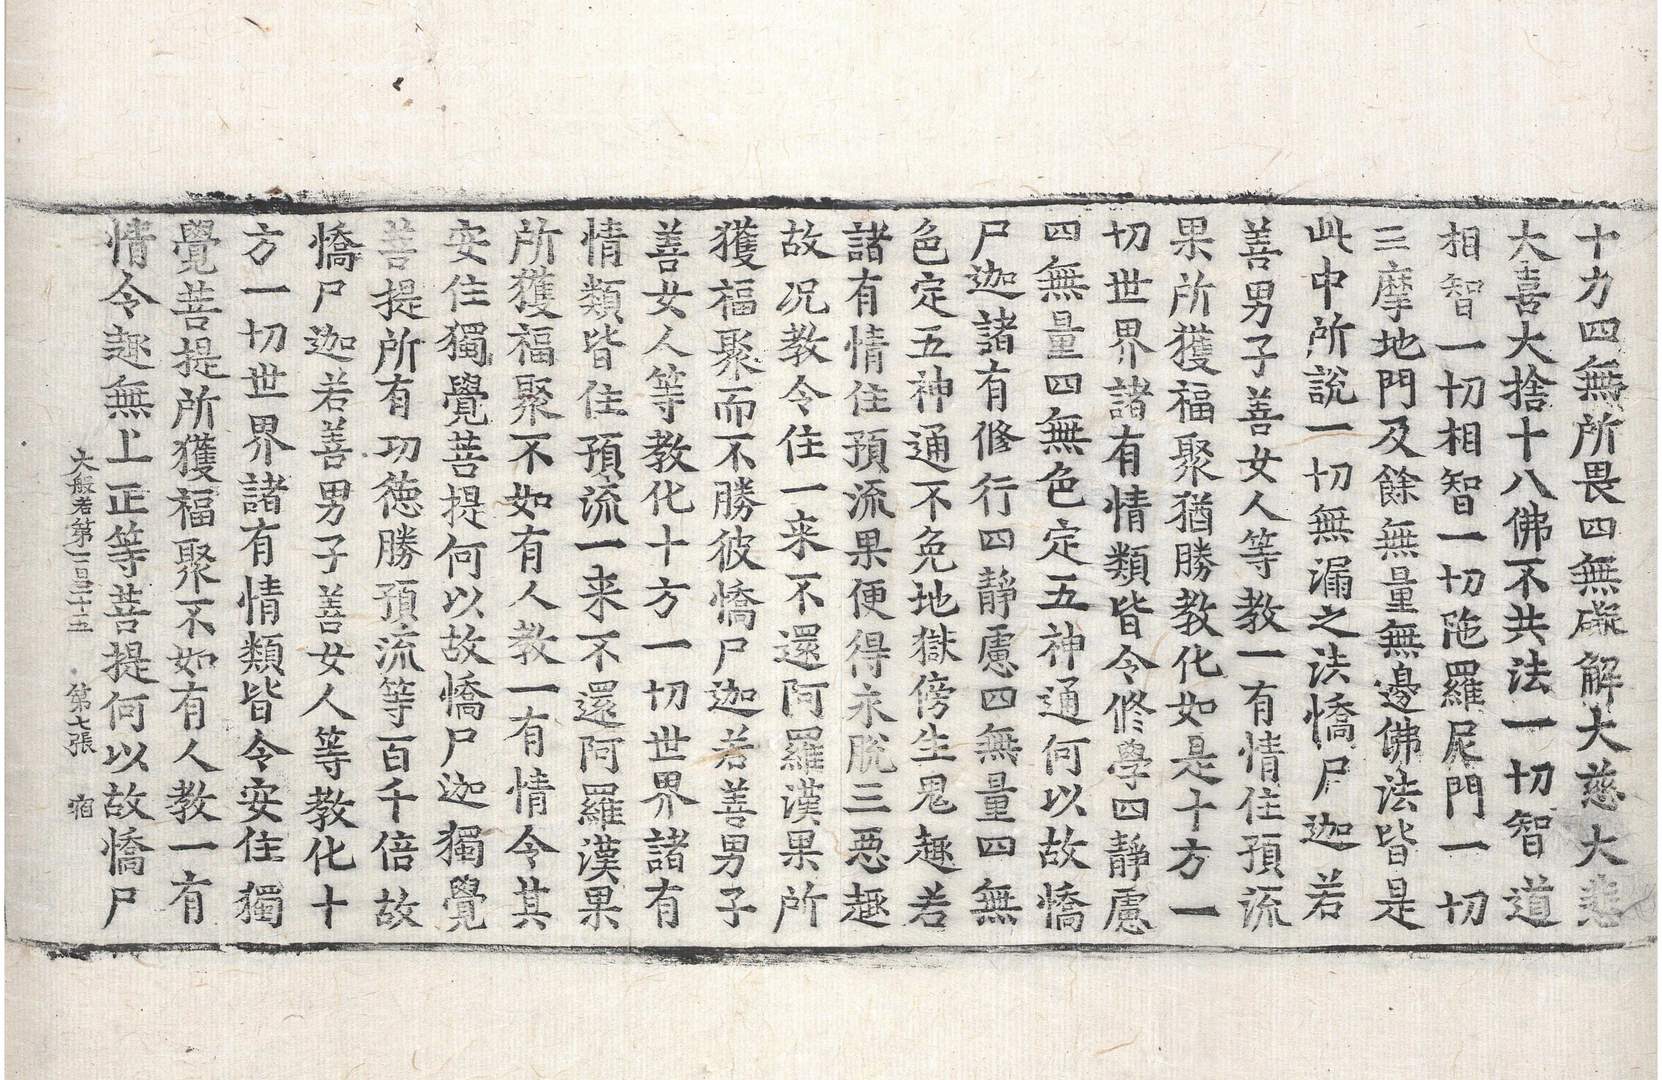 十力四無所畏四無礙解大慈大悲
大喜大捨十八佛不共法一切智道
相智一切相智一切陁羅尼門一切
三摩地門及餘無量無邊佛法皆是
此中所說一切無漏之法憍尸迦若
善男子善女人等教一有情住預流
果所獲福聚猶勝教化如是十方一
切世界諸有情類皆令修學四靜慮
四無量四無色定五神通何以故憍
尸迦諸有修行四靜慮四無量四無
色定五神通不免地獄傍生鬼趣若
諸有情住預流果便得永脫三惡趣
故况教令住一来不還阿羅漢果所
獲福聚而不勝彼憍尸迦若善男子
善女人等教化十方一切世界諸有
情類皆住預流一来不還阿羅漢果
所獲福聚不如有人教一有情令其
安住獨覺菩提何以故憍尸迦獨覺
菩提所有功德勝預流等百千倍故
憍尸迦若善男子善女人等教化十
方一切世界諸有情類皆令安住獨
覺菩提所獲福聚不如有人教一有
情令趣無上正等菩提何以故憍尸
大般若第一百三十五 第七張 宿